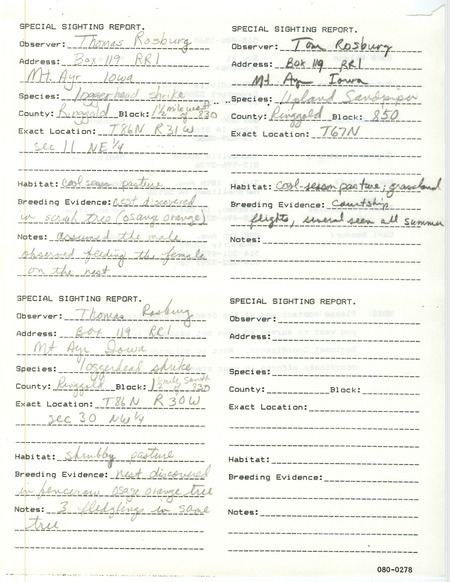 SPECIAL SIGHTING REPORT.
Observer: Thomas Rosburg
Address: Box 119 RR1
Mt. Ayr Iowa
Species: loggerhead shrike
County: Ringgold Block: 1½ mile west of 830
Exact Location: T86N R31W
sec 11 NE¼
Habitat: cool season pasture
Breeding Evidence: nest discovered
in scrub tree (osange orange)
Notes: assumed the male
observed feeding the female
on the nest
SPECIAL SIGHTING REPORT.
Observer: Tom Rosburg
Address: Box 119 RR1
Mt. Ayr Iowa
Species: Upland Sandpiper
County: Ringgold Block: 850
Exact Location: T67N
Habitat: cool-season pasture; grassland
Breeding Evidence: courtship
flights, several seen all summer
Notes:
SPECIAL SIGHTING REPORT.
Observer: Thomas Rosburg
Address: Box 119 RR1
Mt Ayr Iowa
Species: loggerhead shrike
County: Ringgold Block: 1 ½ mile south of 830
Exact Location: T86N R30W
sec 30 NW¼
Habitat: shrubby pasture
Breeding Evidence: nest discovered
in fencerow osage orange tree
Notes: 3 fledglings in same
tree
SPECIAL SIGHTING REPORT.
Observer:
Address:
Species:
County: Block:
Exact Location:
Habitat:
Breeding Evidence:
Notes:
080-0278